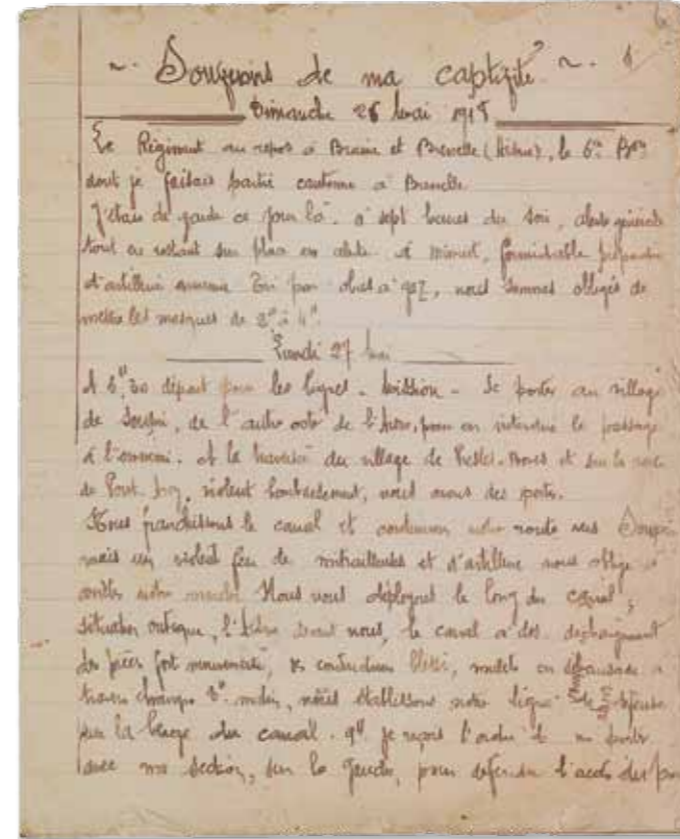 ~. Souvenirs de ma captivité ~.
Dimanche 26 Mai 1918
Le Régiment au repos à Braine et Brenelle (Aisne), le 6e Bon
dont je faisais partie cantonne à Brenelle
J'étais de garde ce jour là. à sept heures du soir, alerte générale
tout en restant sur place en alerte. à minuit, formidable préparation
d'artillerie ennemie Tir par obus à gaz, nous sommes obligés de
mettre les masques de 2h à 4h.
Lundi 27 Mai
A 6h,30 départ pour les lignes. Mission - Se porter au village
de Soupir, de l'autre côté de l'Aisne, pour en interdire le passage
à l'ennemi. A la traversée du village de Presles-Boves et sur la route
de Pont-Arcy, violent bombardement, nous avons des pertes.
Nous franchissons le canal et continuons notre route vers Soupir
mais un violent feu de mitrailleuses et d'artillerie nous oblige à
arrêter notre marche Nous nous déployons le long du canal,
situation critique, l'Aisne devant nous, le canal à dos.
travers champs 8h matin, nous établissons notre ligne de défense
sur la berge du canal. 9h je reçois l'ordre de me porter
avec ma section, sur la gauche, pour défendre l'accès du